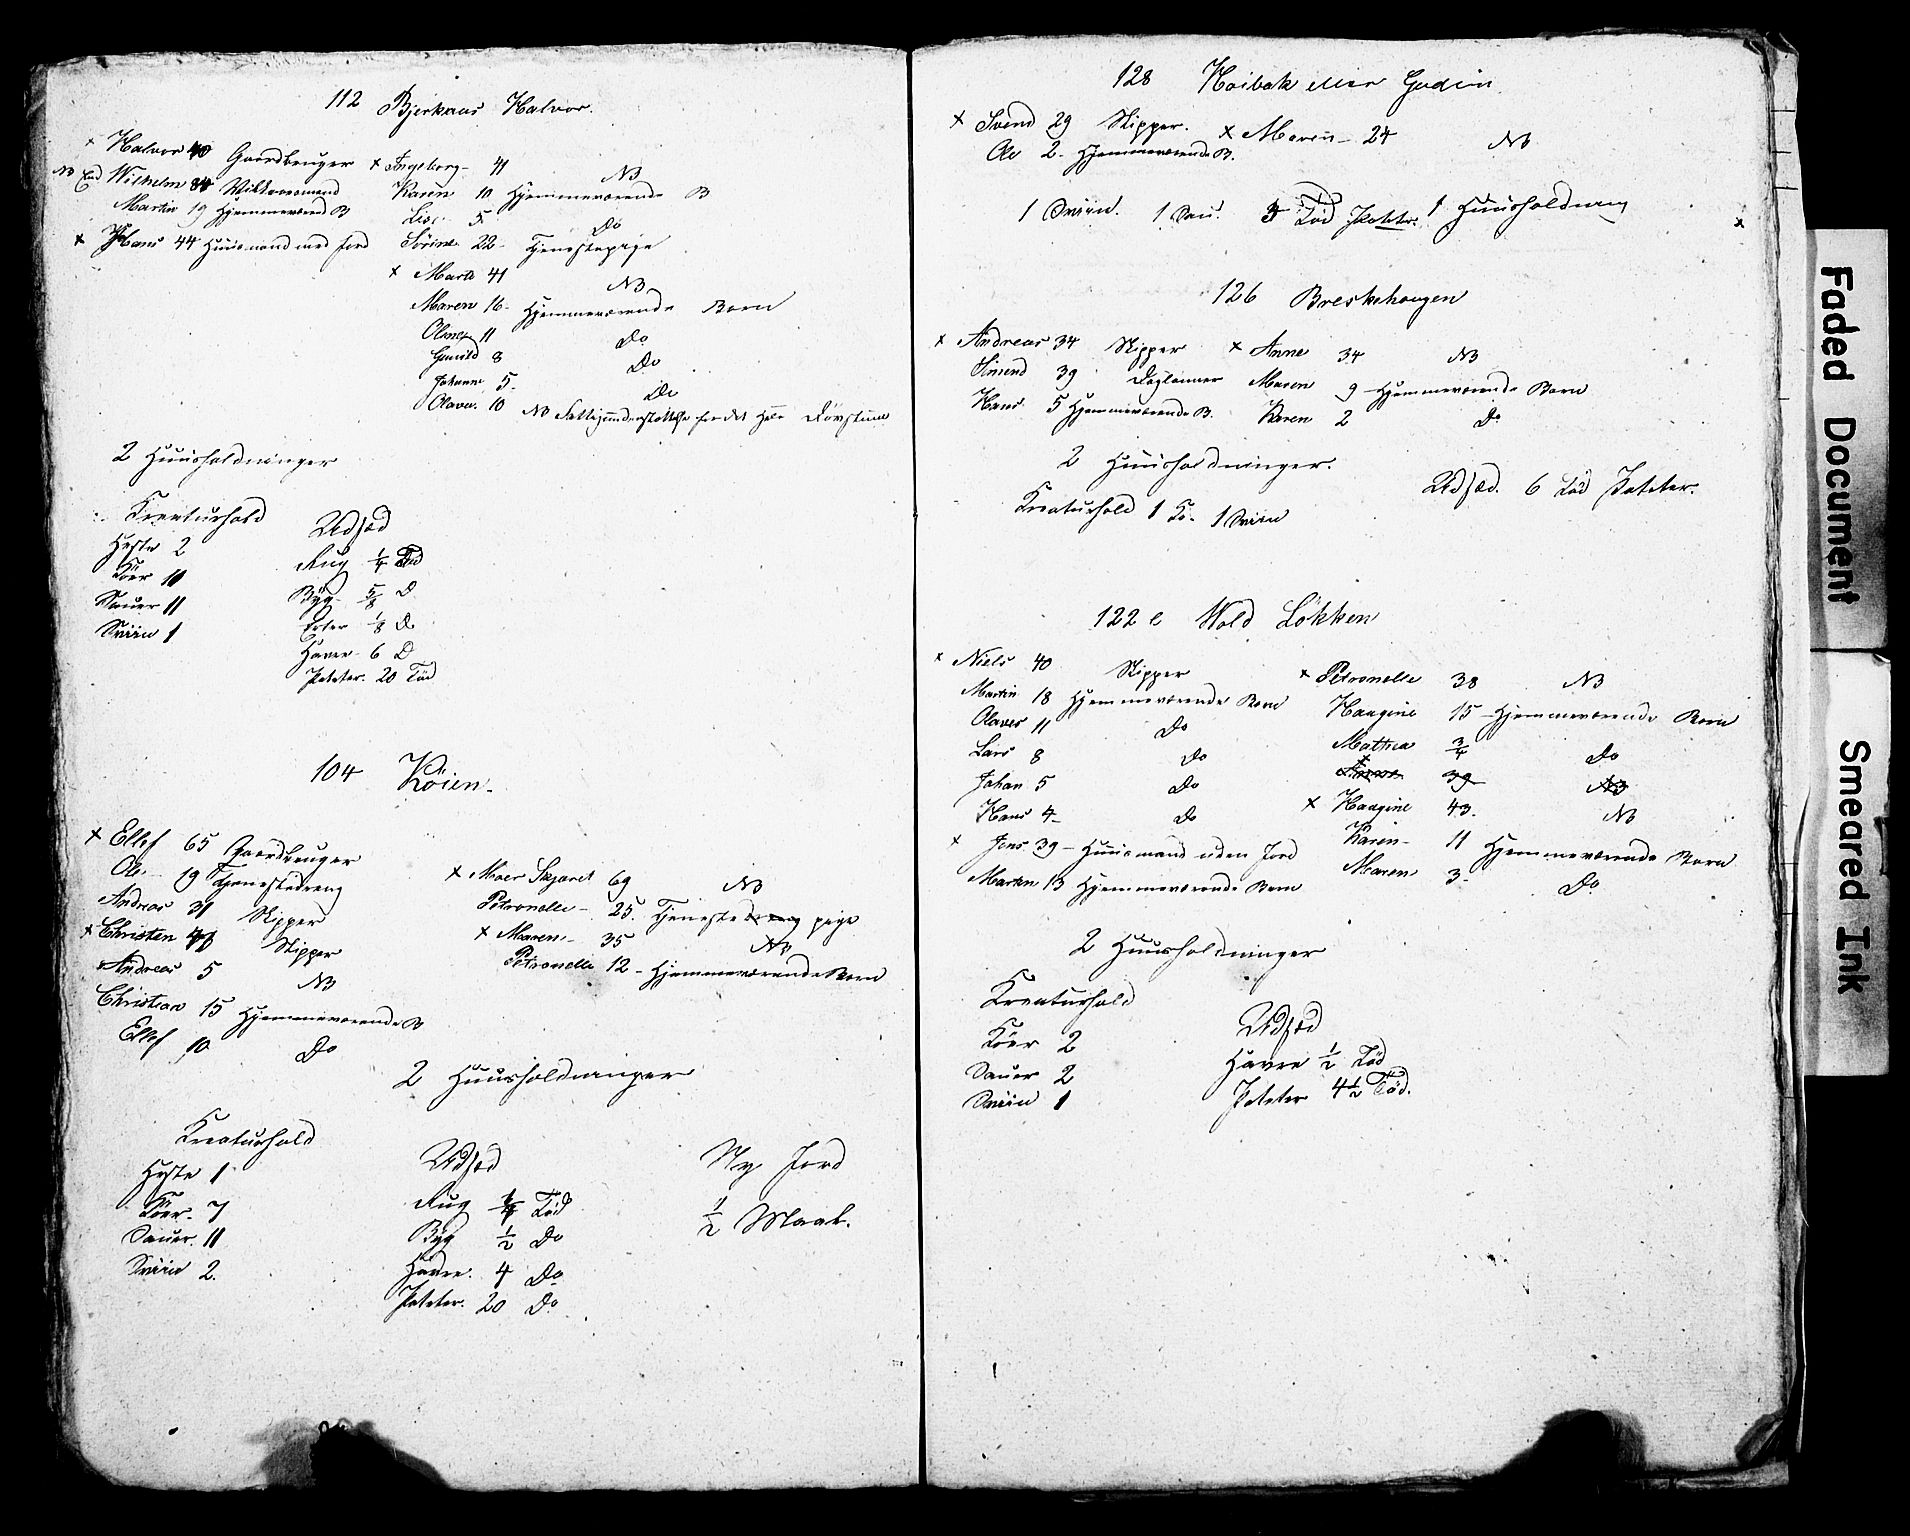 112 Bjerkaas Halvor.
× Halvor 40 Gaardbruger × Ingeborg - 41 NB
NB Wilhelm 84 Karen 10 Hjemmeværende B
Martin 19 Hjemmeværend B Lise 5 Do
× Hans 44 Huusmand med Jord Sørine 22 - Tjenestepige
× Marte 41 NB
Maren 16 - Hjemmeværende Børn
11 Do
Gunild 8 Do
Johanne 5. Do
Olava. 10 NB Døvstum
2 Huusholdninger
Kreaturhold Udsæd
Heste 2 Rug 1/4 Tød
Köer 10 Byg 5/8 D
Sauer 11 Erter 1/8 D
Sviin 1 Havre - 6 D
Poteter. 20 Tød
104 Röien
× Ellef 65 Gaardbruger × Moer 69 NB
Ole 19 Tjenestedreng Petronelle - 25. Tjeneste dreng pige
Andreas 31 Skipper × Maren - 35 NB
× Christen Skipper Petronelle 12 - Hjemmeværende Børn
Andreas 5 NB
Christian 15 Hjemmeværende B
Ellef 10 Do
2 Huusholdninger
Kreaturhold Udsæd Ny Jord
Heste 1 Rug Tød 1/2 Maal.
Köer. 7 Byg 1/2 Do
Sauer. 11 Havre. 4 Do
Sviin 2. Poteter. 20 Do
128 Hoibak
× Svend 29 Skipper. × Maren - 24 NB
Ole 2 - Hjemmeværende B.
1 Sviin. 1 Sau. 3 Tød Poteter. 1 Huusholdning
×
126 Breskehougen
× Andreas 34 Skipper × Anne 34 NB
39 Daglønner Maren 9 - Hjemmeværende Børn
Hans 5 Hjemmeværende B. Karen 2 Do
2 Huusholdninger.
Udsæd. 6 Tød Poteter.
Kreaturhold 1 Ko. 1 Sviin
122 e Wold Lökken
× Niels 40 Skipper × Petronelle 38 NB
Martin 18 Hjemmeværende Børn Haagine 15 - Hjemmeværende Børn
Olaves 11 Do Mathea 3/4 Do
Lars 8 Do Anne 39 NB
Johan 5 Do × Haagine 43. NB
Hans 4 - Do Karen - 11 Hjemmeværende Børn
× Jens 39 - Huusmand uden Jord Maren 3 - Do
Marten 13 Hjemmeværende Børn
2 Huusholdninger
Kreaturhold Udsæd
Köer 2 Havre 1/2 Tød
Sauer 2 Poteter 4 1/2 Tød.
Sviin 1
Faded Document
Smeared Ink